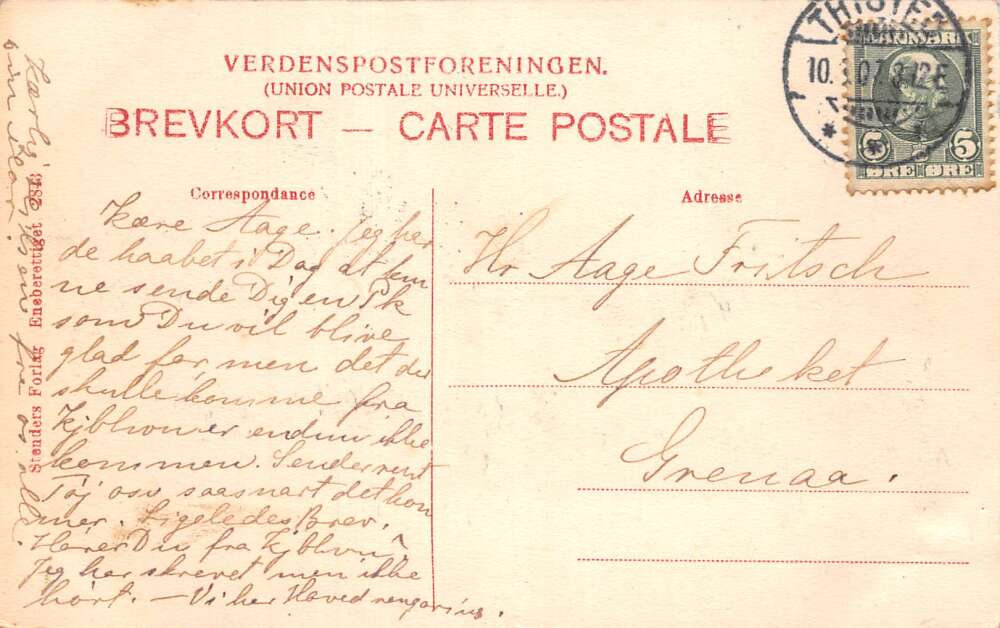 VERDENSPOSTFORENINGEN.
(UNION POSTALE UNIVERSELLE.)
BREVKORT — CARTE POSTALE
THISTED
10. .07. 8.12E
DANMARK
5 5
ØRE ØRE
Correspondance
Adresse
Kære Aage. Jeg hav
de haabet i Dag at kun
ne sende Dig en Pk
som Du vil blive
glad for, men det der
skulle komme fra
Kjbhvn er endnu ikke
kommen. Sender rent
Tøj osv saasnart det kom
mer. Ligeledes Brev.
Hører Du fra Kjbhvn?
Jeg har skrevet men ikke
hørt. — Vi har Hovedrengøring.
Kærlig Hilsen fra os alle
din
Hr Aage Fritsch
Apotheket
Grenaa.
Stenders Forlag Eneberettiget 2843